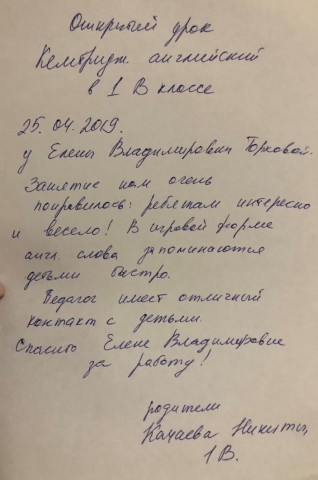 Открытый урок
Кембридж. английский
в 1 В классе
25.04.2019.
у Елены Владимировны Торховой.
Занятие нам очень
понравилось: ребятам интересно
и весело! В игровой форме
англ. слова запоминаются
детьми быстро.
Педагог имеет отличный
контакт с детьми.
Спасибо Елене Владимировне
за работу!
родители
Качаева Никиты,
1 В.